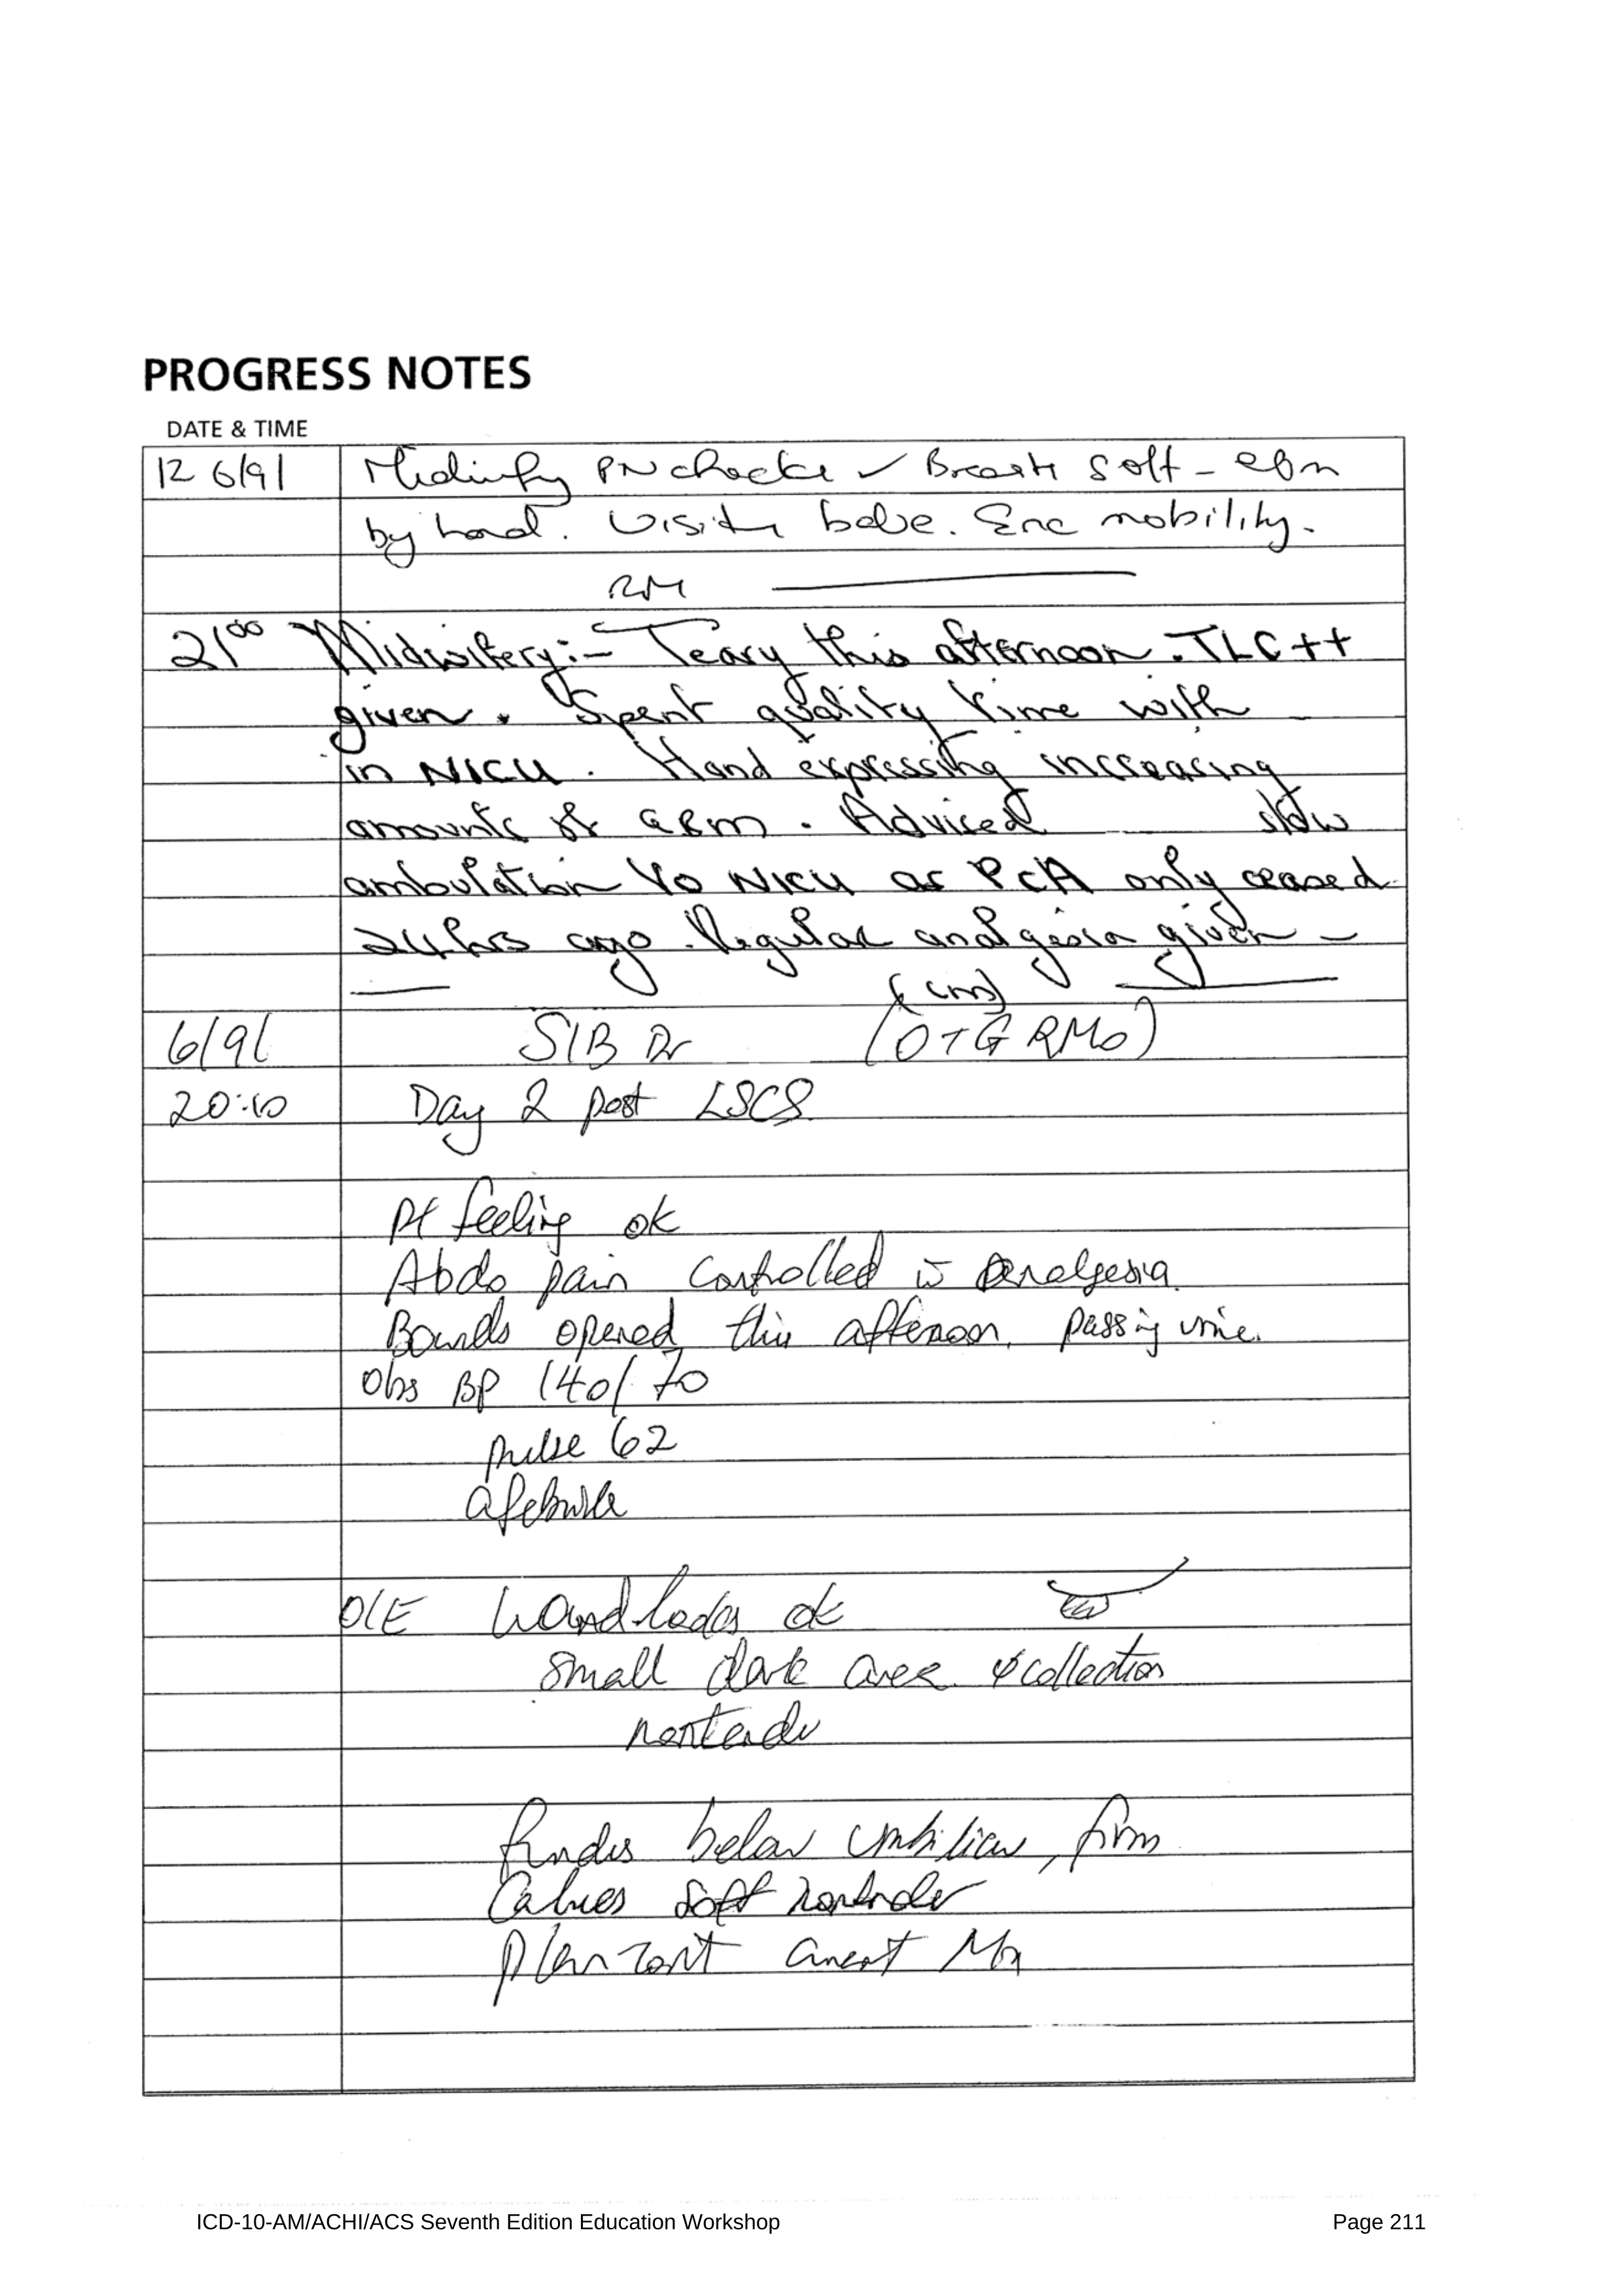 PROGRESS NOTES
DATE & TIME
12 6/9/ Midwifery PN checks ✓ Breasts soft - ebm
by hand. Visiting babe. Enc mobility.
RM
21⁰⁰ Midwifery:- Teary this afternoon. TLC++
given. Spent quality time with
in NICU. Hand expressing increasing
amounts of EBM. Advised slow
ambulation to NICU as PCA only ceased
24hrs ago. Regular analgesia given -
(cm)
6/9/ S/B Dr (O+G RMO)
20:10 Day 2 post LSCS
Pt feeling ok
Abdo pain controlled w̄ analgesia.
Bowels opened this afternoon. passing urine.
Obs BP 140/70
pulse 62
afebrile
O/E Wound looks ok
small dark area collection
nontender
fundus below umbilicus, firm
Calves soft nontender
Plan cont current Mx
ICD-10-AM/ACHI/ACS Seventh Edition Education Workshop
Page 211